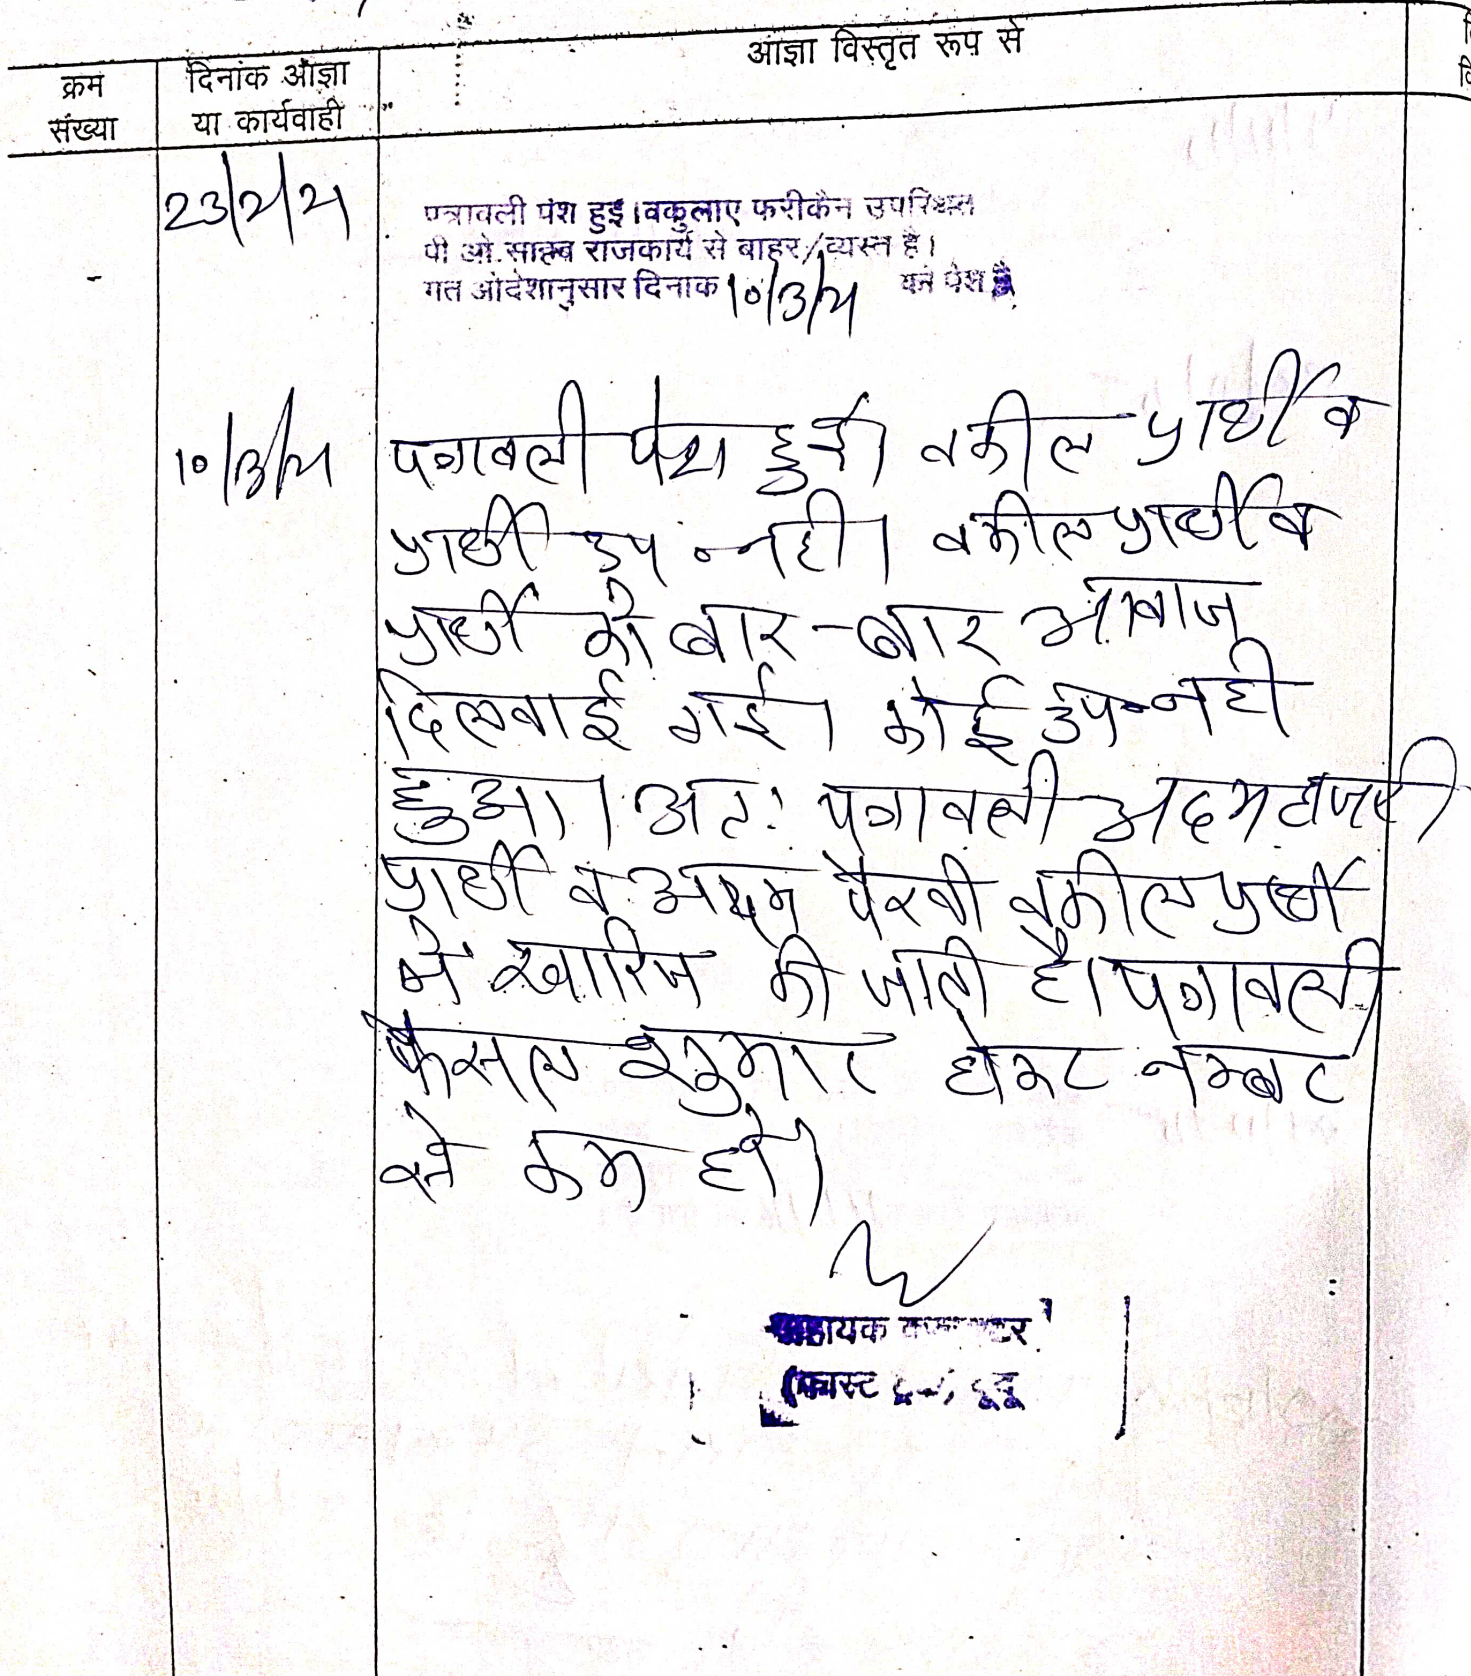 आज्ञा विस्तृत रूप से
क्रम
संख्या
दिनांक आज्ञा
या कार्यवाही
23/2/21
पत्रावली पेश हुई। वकुलाए फरीकैन उपस्थित
पी ओ. साहब राजकार्य से बाहर/व्यस्त है।
गत आदेशानुसार दिनांक 10/3/21 को पेश हो
10/3/21
पत्रावली पेश हुई। वकील प्रार्थी व
प्रार्थी उप० नही। वकील प्रार्थी व
प्रार्थी को बार-बार आवाज
दिलवाई गई। कोई उप० नही
हुआ। अतः पत्रावली अदम हाजरी
प्रार्थी व अदम पैरवी वकील प्रार्थी
मे खारिज की जाती है। पत्रावली
फैसल शुमार होकर नम्बर
से कम हो।
सहायक कलक्टर
(फास्ट ट्रेक) दूदू